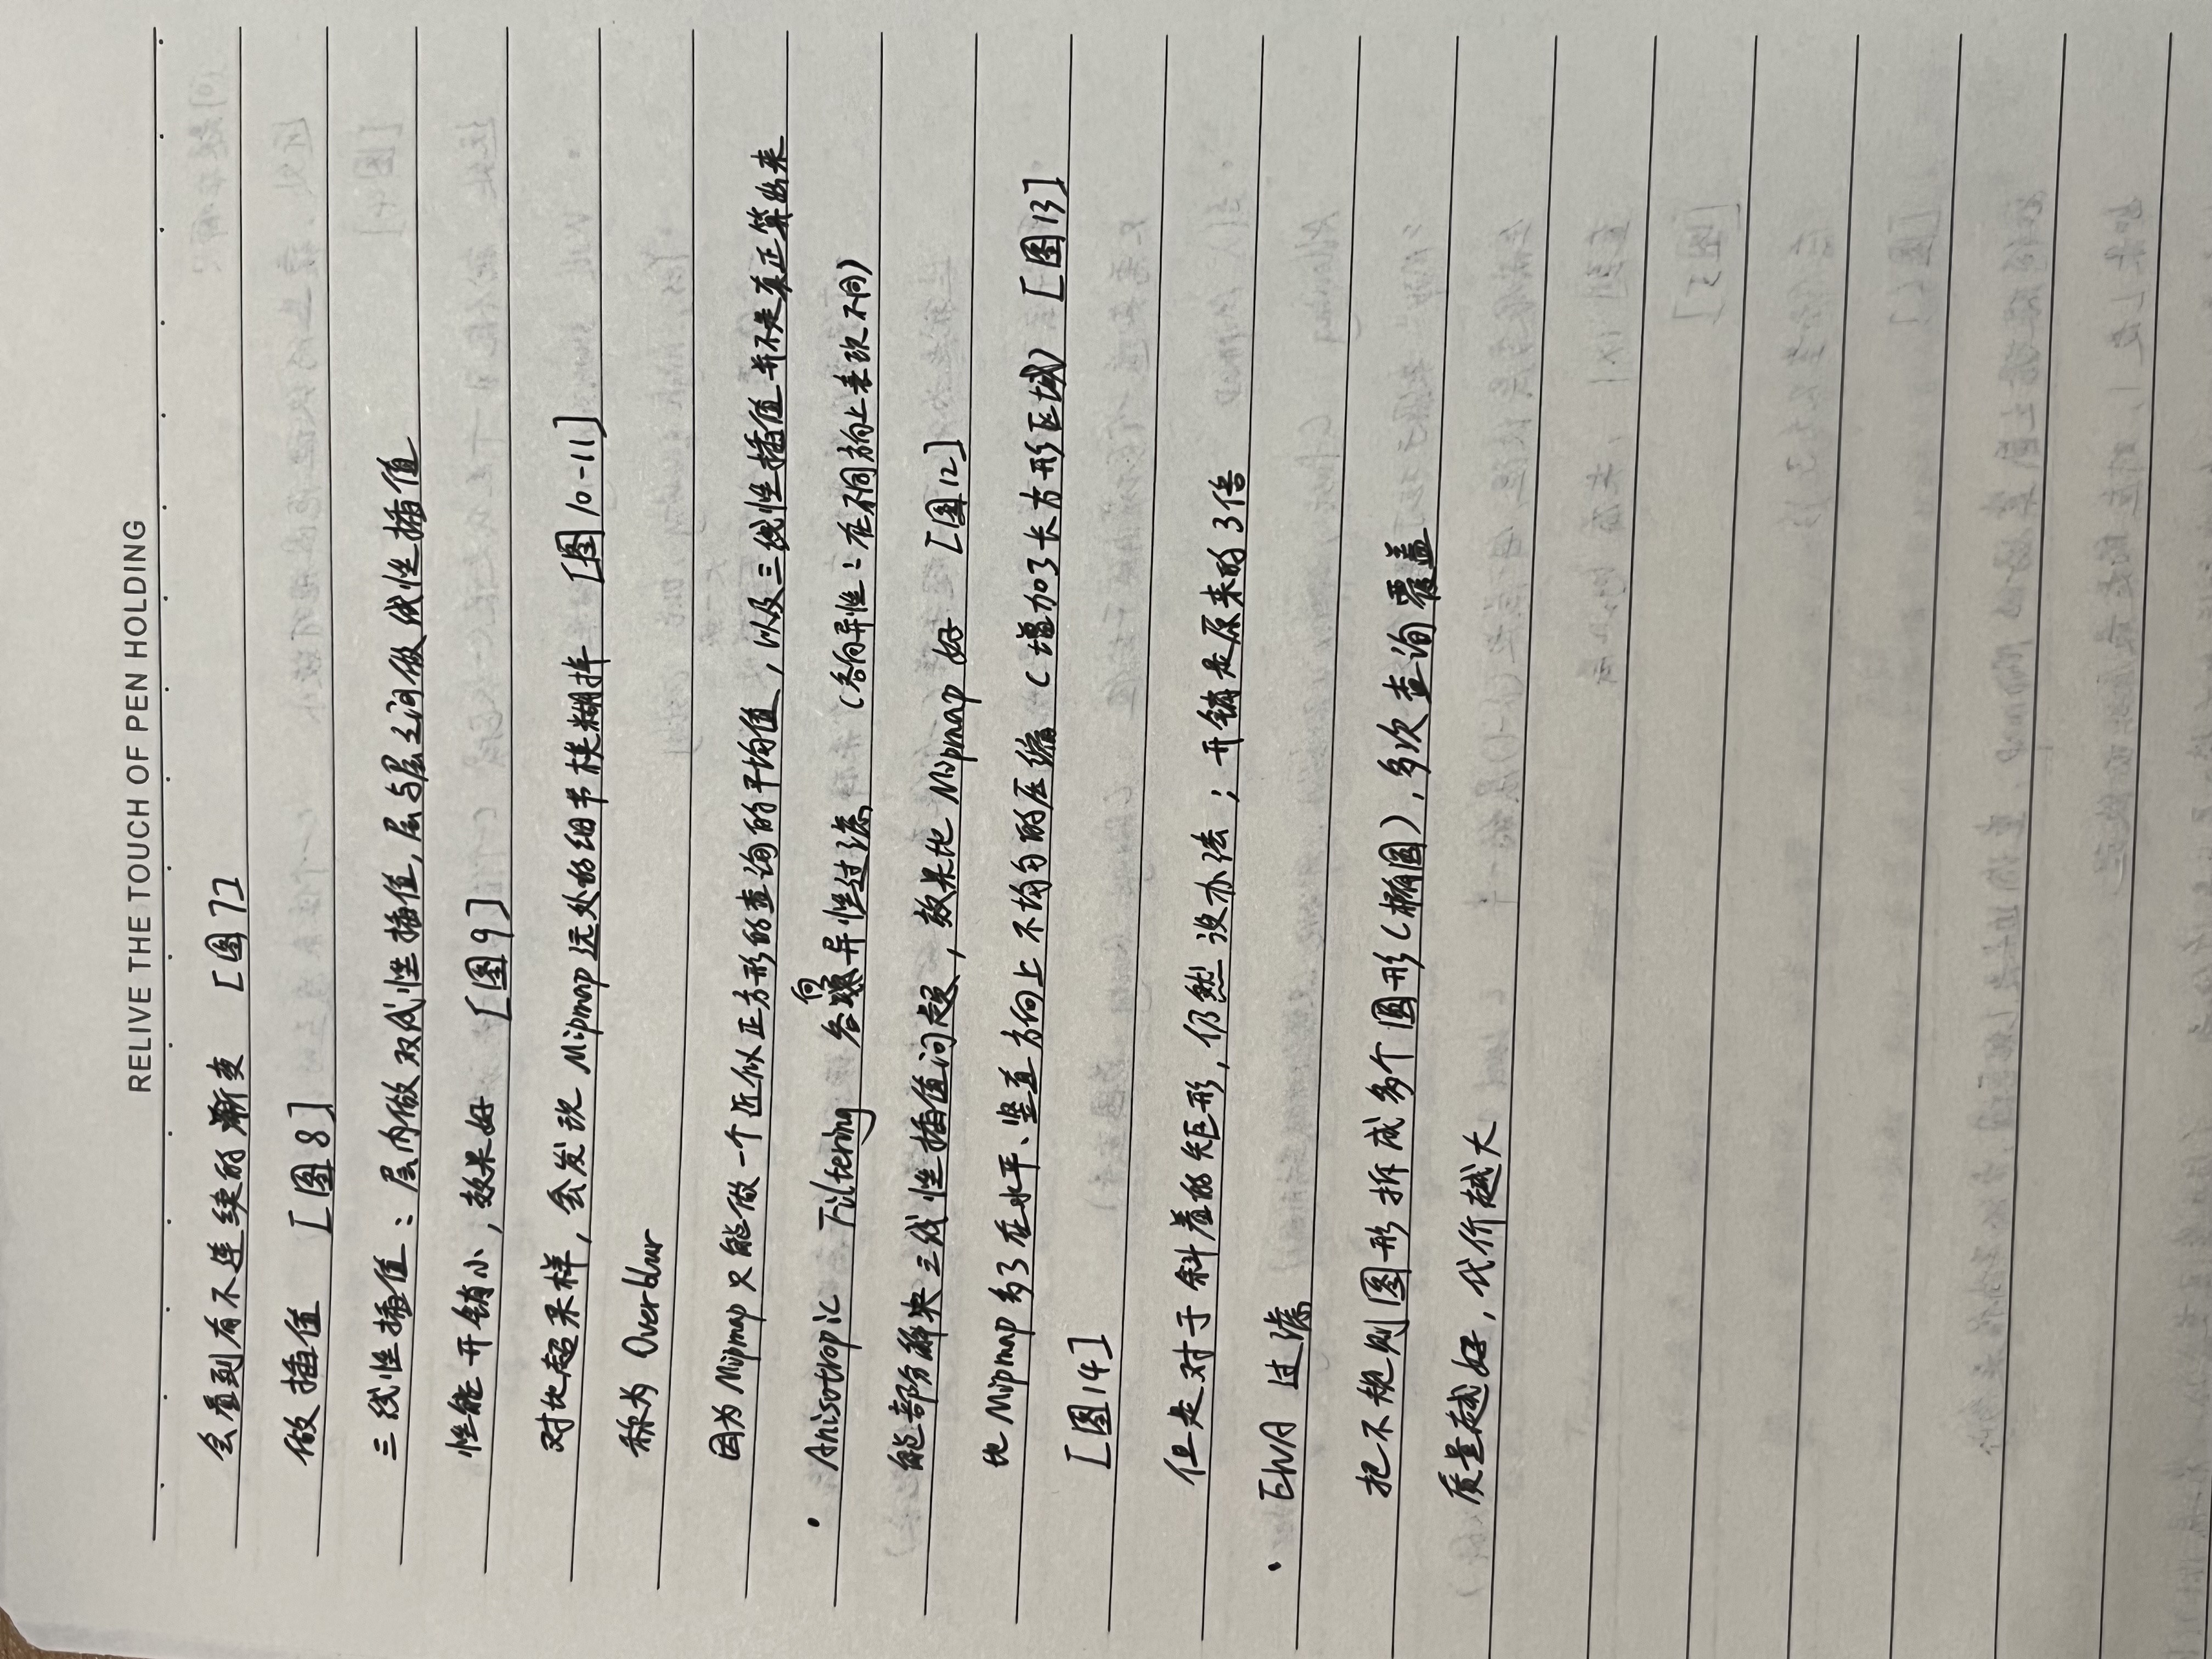 RELIVE THE TOUCH OF PEN HOLDING
会看到有不连续的渐变 [图7]
做插值 [图8]
三线性插值：层内做双线性插值，层与层之间做线性插值
性能开销小，效果好 [图9]
对比超采样，会发现 Mipmap 远处的细节模糊掉 [图10-11]
称为 Overblur
因为 Mipmap 只能做一个近似正方形的查询的平均值，以及三线性插值并不是真正算出来
· Anisotropic Filtering 各向异性过滤 (各向异性：在不同方向上表现不同)
能部分解决三线性插值问题，效果比 Mipmap 好 [图12]
比 Mipmap 多了在水平、竖直方向上不均匀的压缩 (增加了长方形区域) [图13]
[图14]
但是对于斜着的矩形，仍然没办法；开销是原来的3倍
· EWA 过滤
把不规则图形拆成多个圆形(椭圆)，多次查询覆盖
质量越好，代价越大